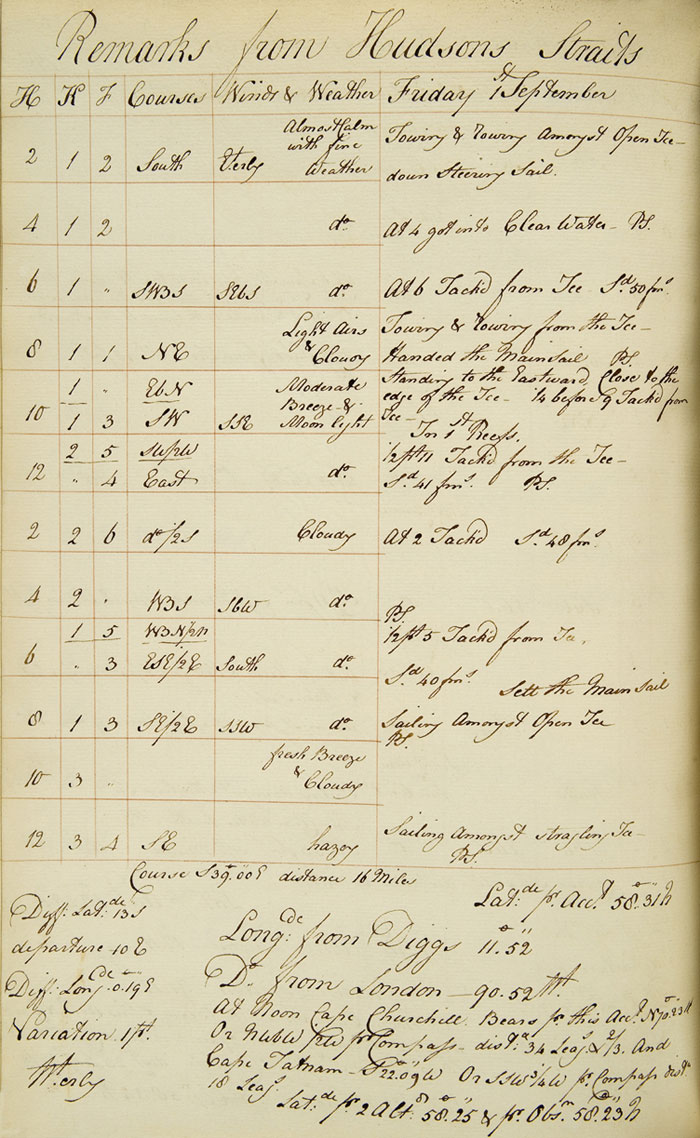 Remarks from Hudsons Straits
H K F Courses Winds & Weather Friday 1st September
2 1 2 South Eterly Almost Calm with fine Weather Towing & rowing Amongst Open Ice
down Steering Sail.
4 1 2 do At 4 got into Clear Water PS.
6 1 " SWBS SEbS do At 6 Tackd from Ice Sd 50 fms
8 1 1 NE Light Airs & Cloudy Towing & rowing from the Ice
Handed the Mainsail PS
1 " EbN Moderate Standing to the Eastward, Close to the
10 1 3 SW SSE Breeze & Moon light edge of the Ice ¼ before 9 Tackd from
Ice In 1st Reefs.
2 5 SW½W 1/2 pt 11 Tackd from the Ice
12 " 4 East do Sd 41 fms PS.
2 2 6 do ½S Cloudy At 2 Tackd Sd 48 fms
4 2 " WBS SbW do PS.
1 5 WBN½N 1/2 pt 5 Tackd from Ice
6 " 3 ESE½E South do Sd 40 fms Sett the Main Sail
8 1 3 SE½E SSW do Sailing Amongst Open Ice
PS.
10 3 " fresh Breeze & Cloudy
12 3 4 SE hazey Sailing Amongst stragling Ice
PS.
Course S39°.00E distance 16 Miles
Latde pr Acct 58°.31"N
Diff: Latde 13S
Longde from Diggs 11°.52"
departure 10E
Diff: Longde 0°.19"E
Do from London 90.52 Wt.
At Noon Cape Churchill Bears pr this Acct N70°.23W
Variation 1pt. Or pr Compass distce 34 Leags & 2/3. And
Wterly
Cape Tatnam S22°.09W Or SSW¾W pr Compass distce
18 Leags
Latde pr 2 Alts 58°.25 & pr Obsn 58°.23"N